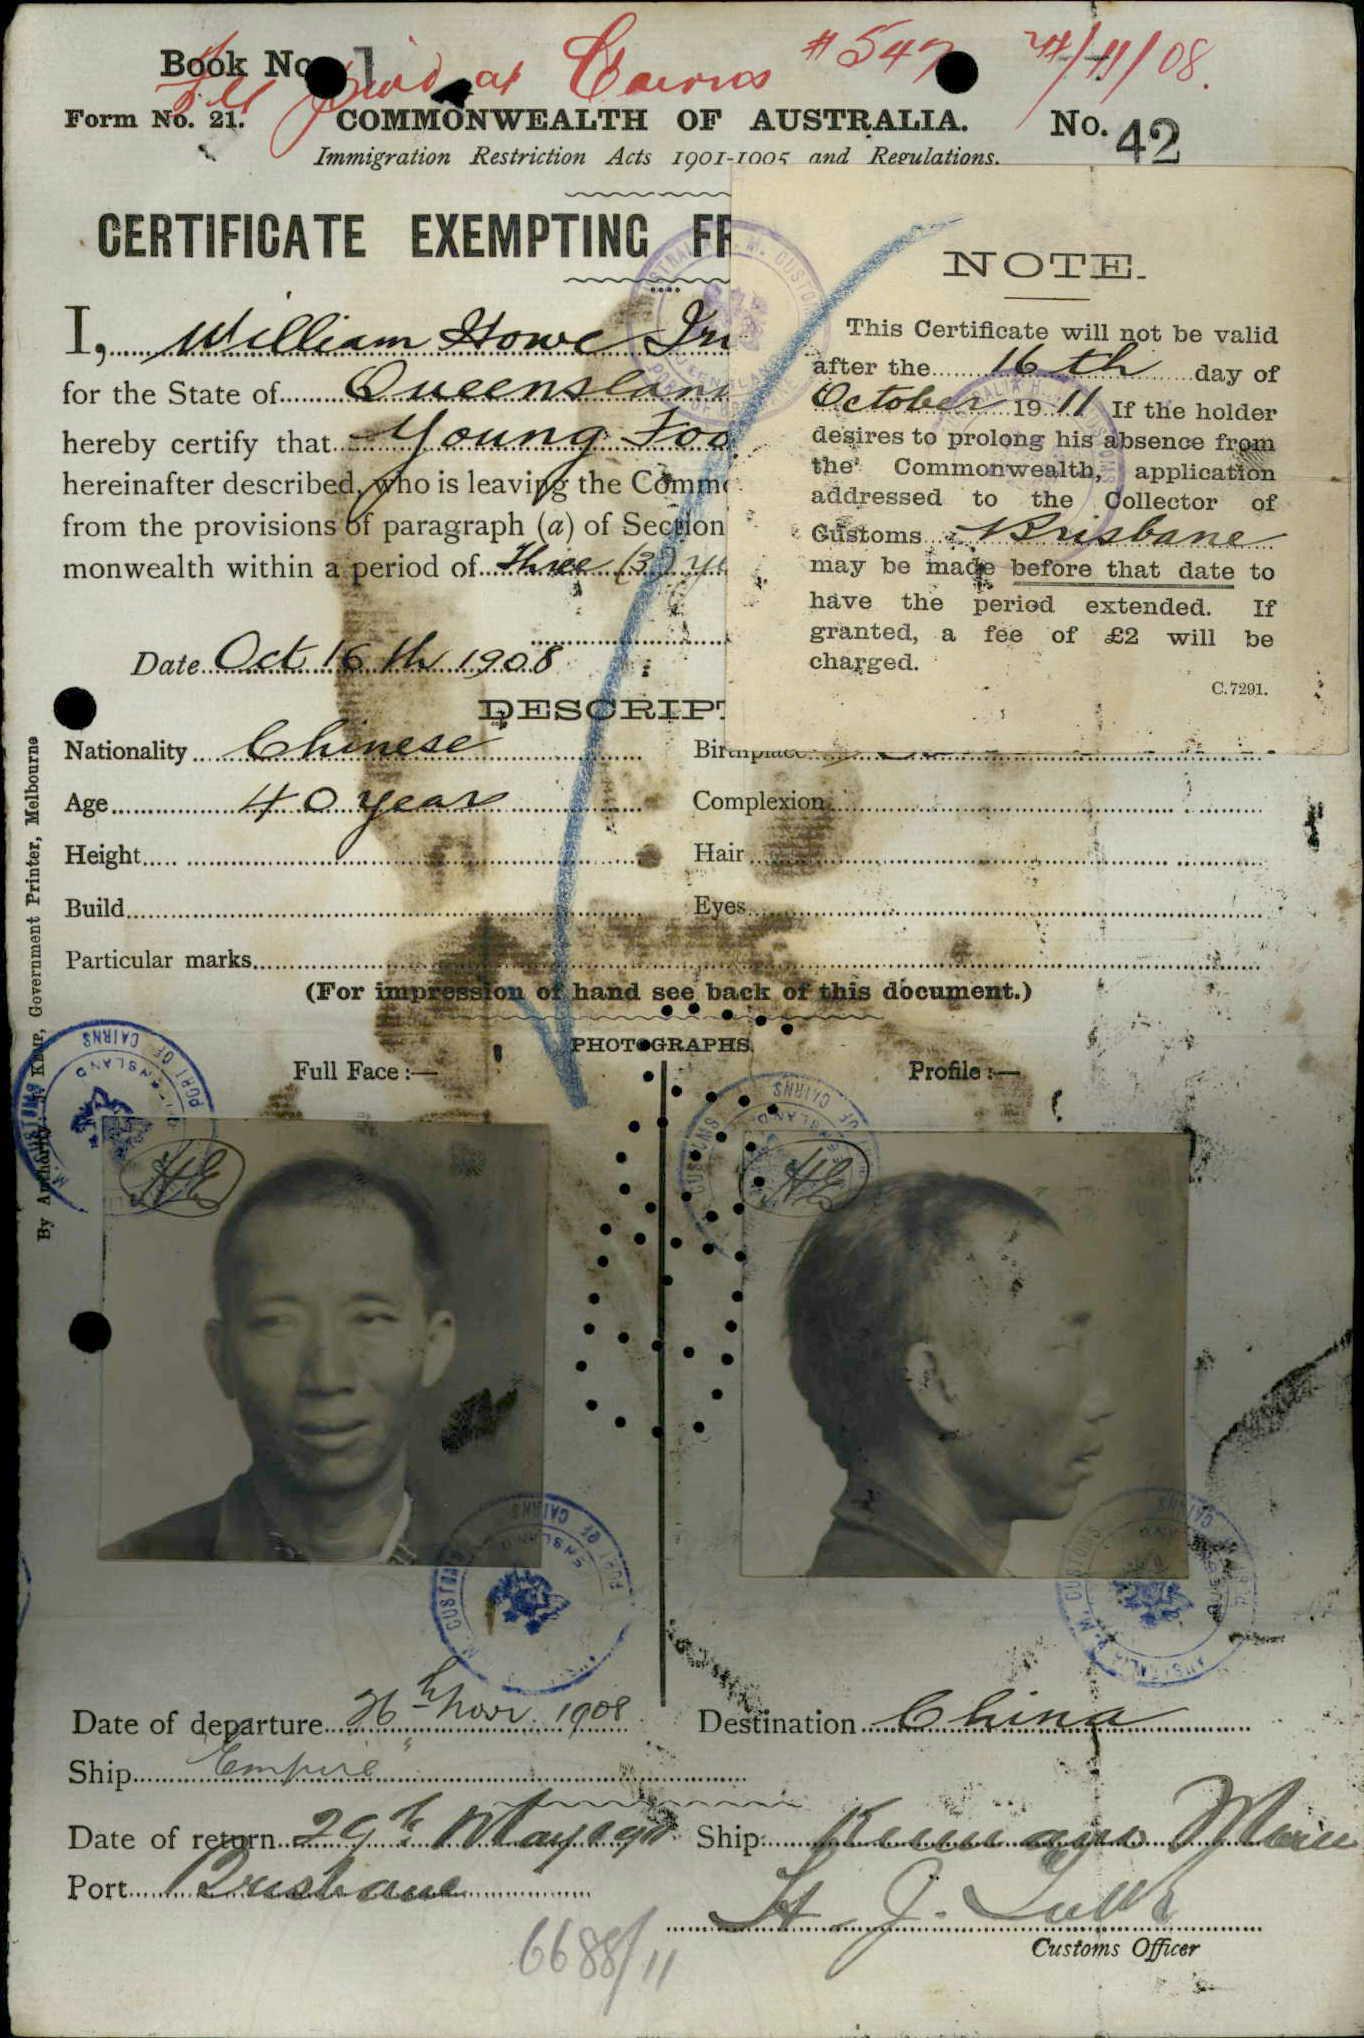 Book No. 1
Fee paid at Cairns # 547 24/11/08.
Form No. 21. COMMONWEALTH OF AUSTRALIA. No. 42
Immigration Restriction Acts 1901-1905 and Regulations.
CERTIFICATE EXEMPTING FR
I, William Howe Ir
for the State of Queenslan
hereby certify that Young Foo
hereinafter described, who is leaving the Comm
from the provisions of paragraph (a) of Section
monwealth within a period of three (3) ye
Date Oct 16th 1908
NOTE.
This Certificate will not be valid
after the 16th day of
October 1911 If the holder
desires to prolong his absence from
the Commonwealth, application
addressed to the Collector of
Customs Brisbane
may be made before that date to
have the period extended. If
granted, a fee of £2 will be
charged.
C.7291.
DESCRIPT
Nationality Chinese Birthplace
Age 40 year Complexion
Height Hair
Build Eyes
Particular marks
(For impression of hand see back of this document.)
PHOTOGRAPHS.
Full Face :— Profile :—
By Authority: KEMP, Government Printer, Melbourne
PORT OF CAIRNS
HE
PORT OF CAIRNS
HE
PORT OF CAIRNS
Date of departure 26th Novr. 1908 Destination China
Ship "Empire"
Date of return 29th May Ship Maru
Port Brisbane
H. J.
Customs Officer
6688/11